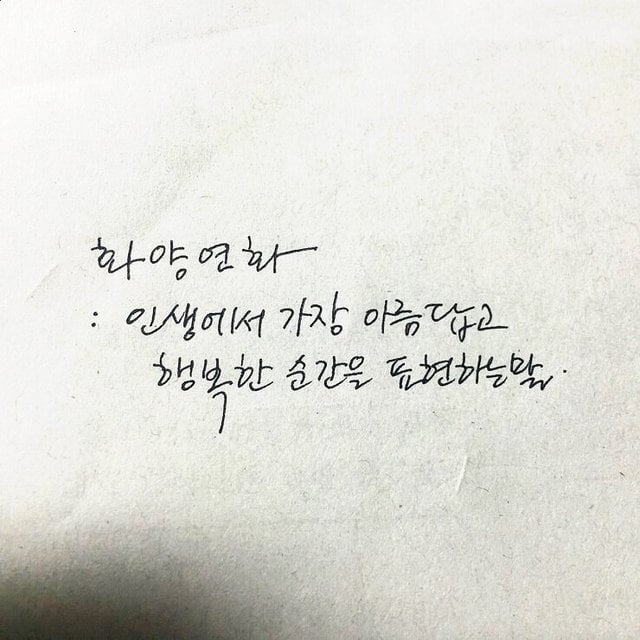 화양연화
: 인생에서 가장 아름답고
행복한 순간을 표현하는말.